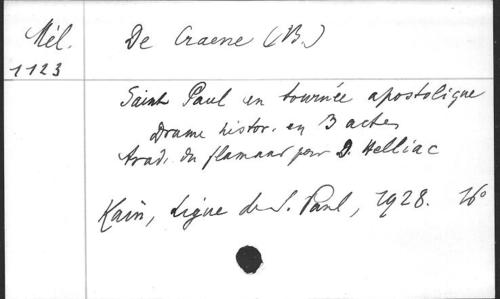 Mél. De Craene (B.)
1123
Saint Paul en tournée apostolique
Drame histor. en 3 actes
trad. du flamand par D. Helliac
Kain, Ligue de S. Paul, 1928. 16°